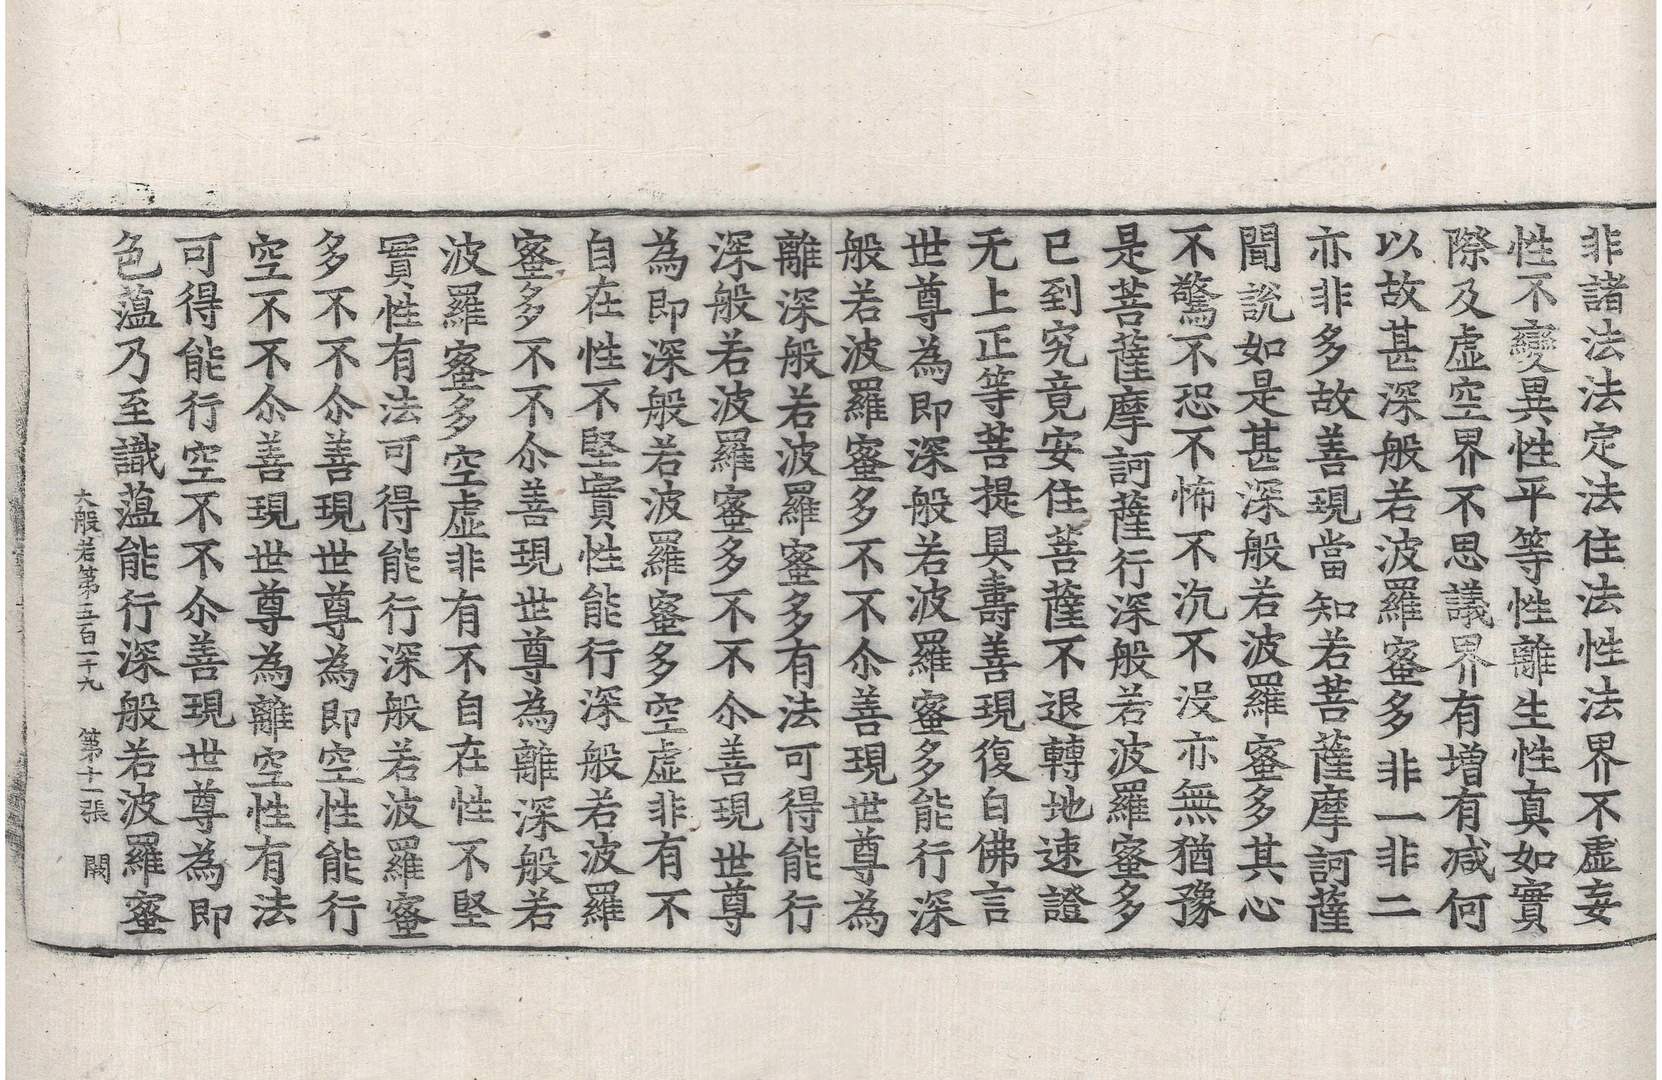 非諸法法定法住法性法界不虛妄
性不變異性平等性離生性真如實
際及虛空界不思議界有增有減何
以故甚深般若波羅蜜多非一非二
亦非多故善現當知若菩薩摩訶薩
聞說如是甚深般若波羅蜜多其心
不驚不恐不怖不沉不沒亦無猶豫
是菩薩摩訶薩行深般若波羅蜜多
已到究竟安住菩薩不退轉地速證
无上正等菩提具壽善現復白佛言
世尊為即深般若波羅蜜多能行深
般若波羅蜜多不不尒善現世尊為
離深般若波羅蜜多有法可得能行
深般若波羅蜜多不不尒善現世尊
為即深般若波羅蜜多空虛非有不
自在性不堅實性能行深般若波羅
蜜多不不尒善現世尊為離深般若
波羅蜜多空虛非有不自在性不堅
實性有法可得能行深般若波羅蜜
多不不尒善現世尊為即空性能行
空不不尒善現世尊為離空性有法
可得能行空不不尒善現世尊為即
色薀乃至識薀能行深般若波羅蜜
大般若第五百一十九 第十一張 闕